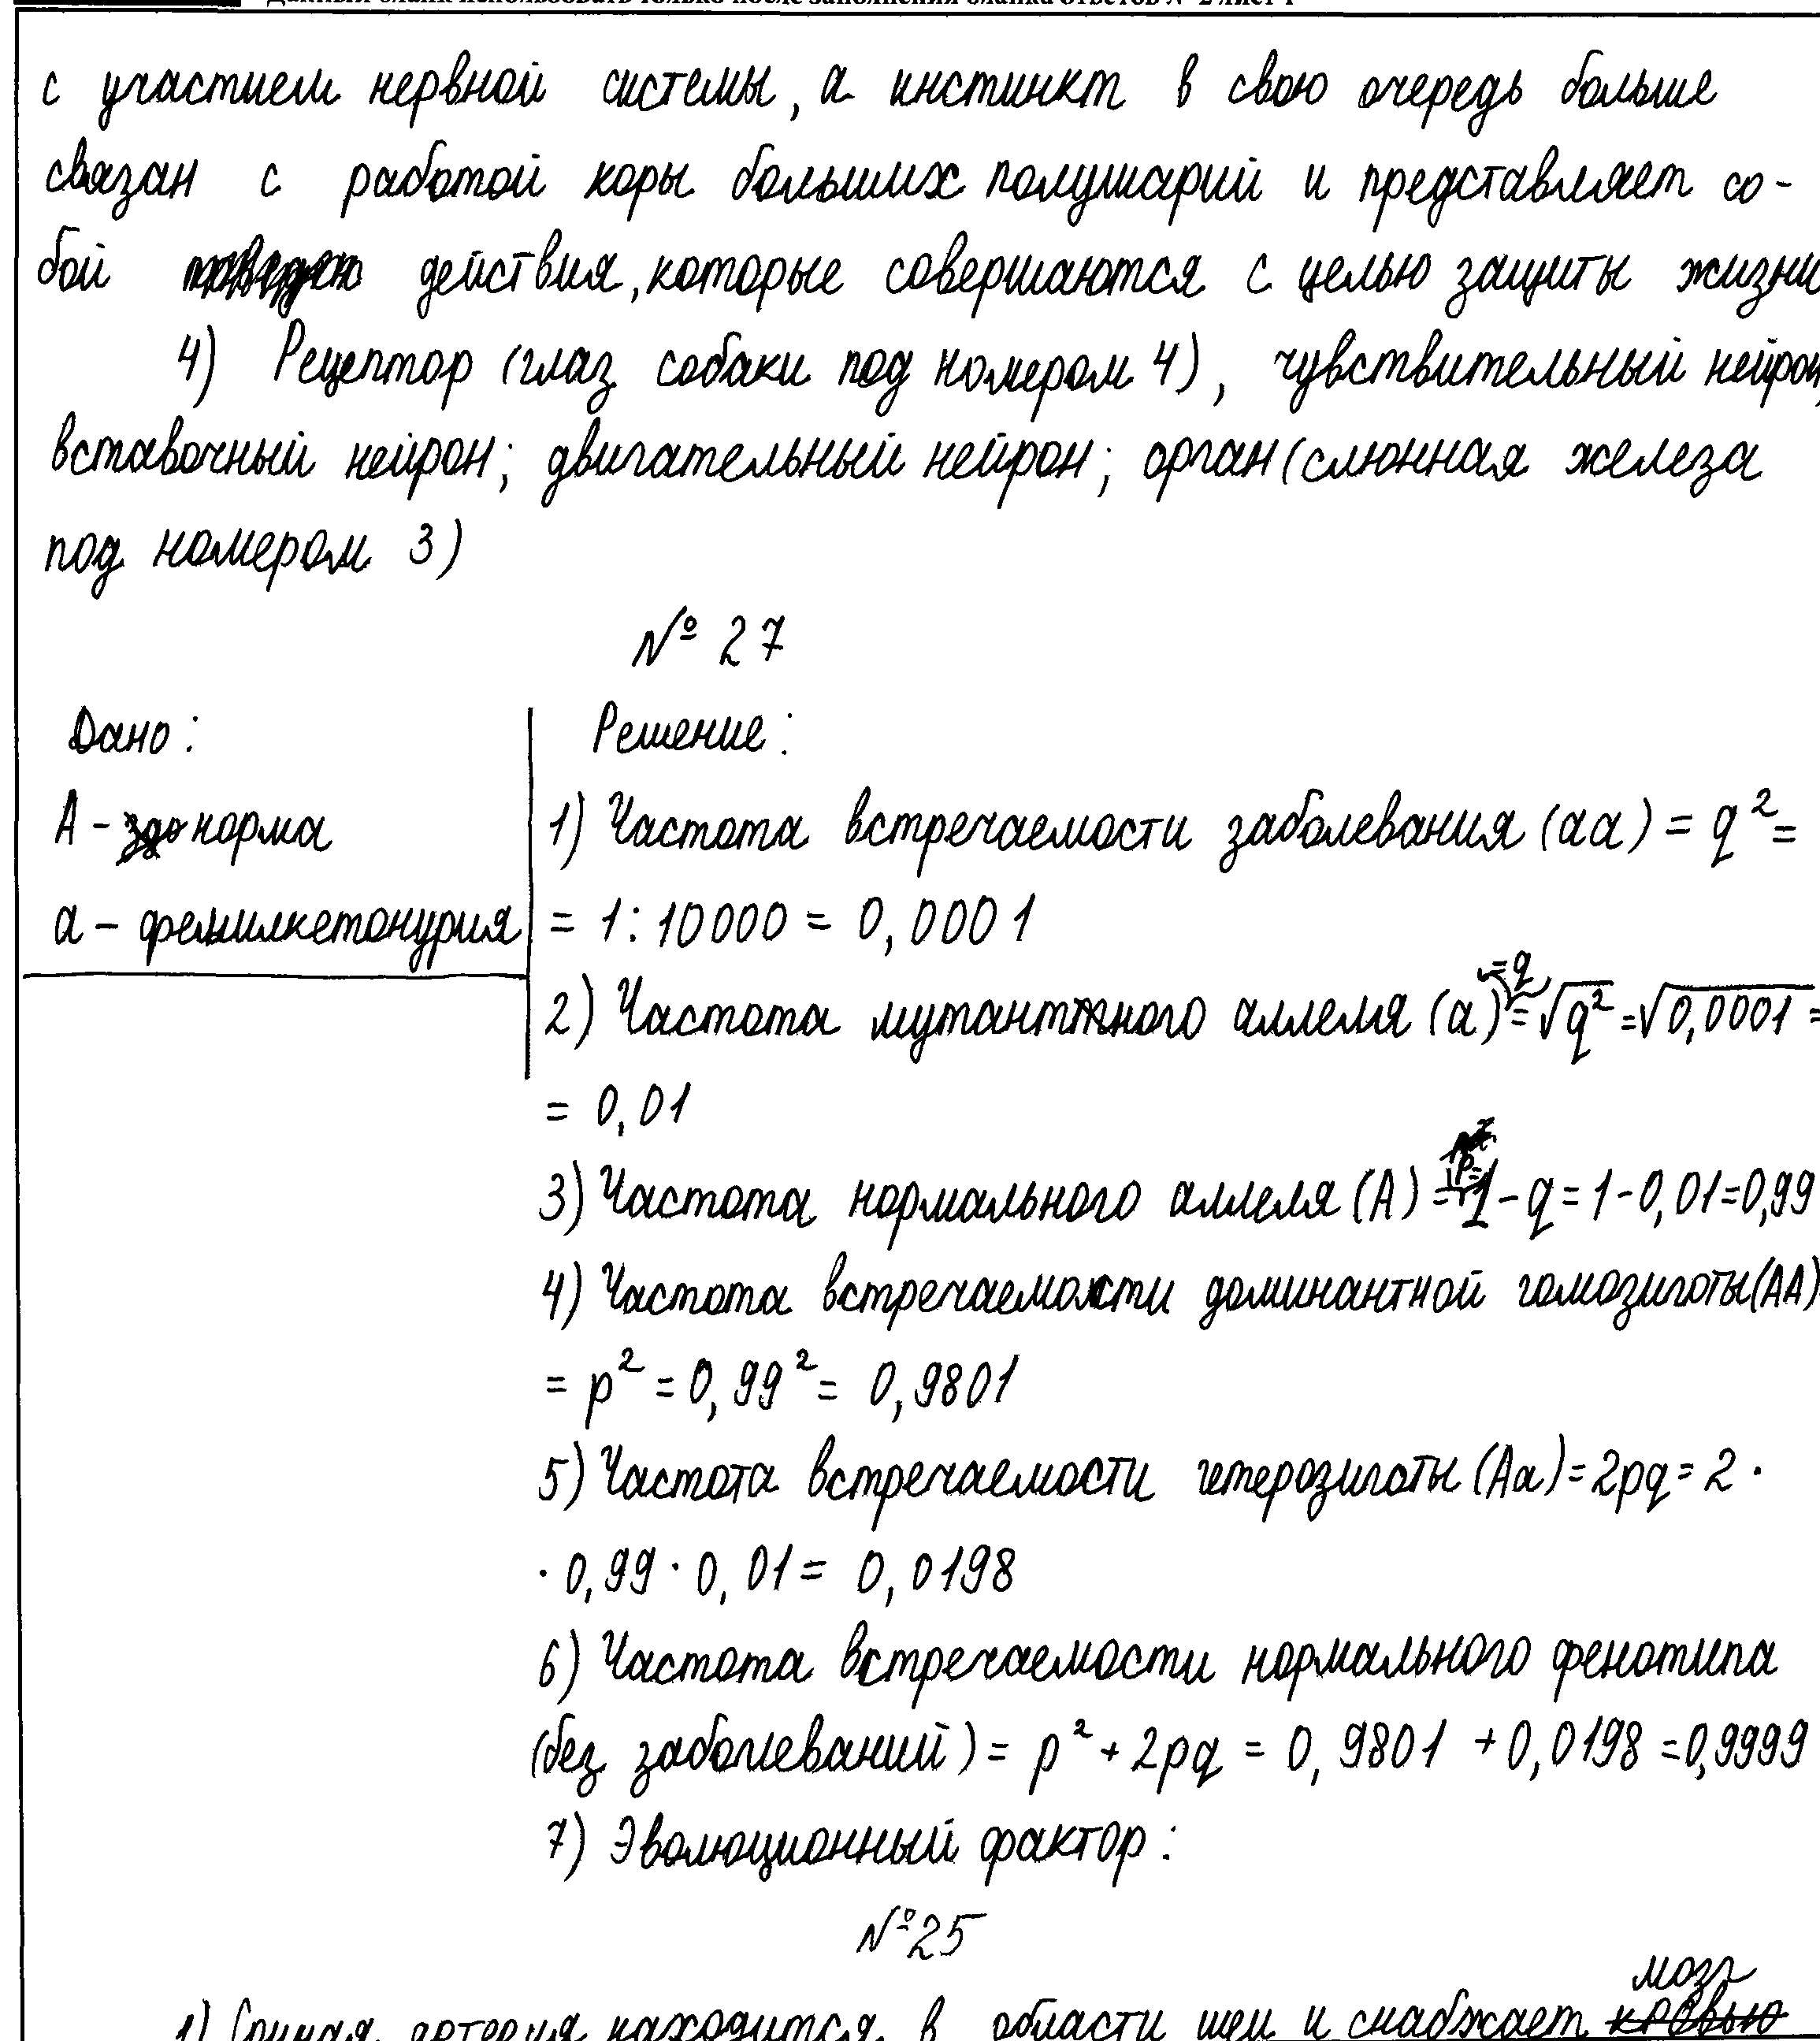 Данный бланк использовать только после заполнения бланка ответов № 2 лист 1
с участием нервной системы, а инстинкт в свою очередь больше
связан с работой коры больших полушарий и представляет со-
бой действия, которые совершаются с целью защиты жизни
4) Рецептор (глаз собаки под номером 4), чувствительный нейрон,
вставочный нейрон; двигательный нейрон; орган (слюнная железа
под номером 3)
№ 27
Дано:
А - норма
а - фенилкетонурия
Решение:
1) Частота встречаемости заболевания (аа) = q² =
= 1 : 10000 = 0,0001
2) Частота мутантного аллеля (а) = q = √q² = √0,0001 =
= 0,01
3) Частота нормального аллеля (А) = p = 1 - q = 1 - 0,01 = 0,99
4) Частота встречаемости доминантной гомозиготы (АА)
= p² = 0,99² = 0,9801
5) Частота встречаемости гетерозиготы (Аа) = 2pq = 2 ·
· 0,99 · 0,01 = 0,0198
6) Частота встречаемости нормального фенотипа
(без заболеваний) = p² + 2pq = 0,9801 + 0,0198 = 0,9999
7) Эволюционный фактор:
№ 25
1) Сонная артерия находится в области шеи и снабжает мозг кровью